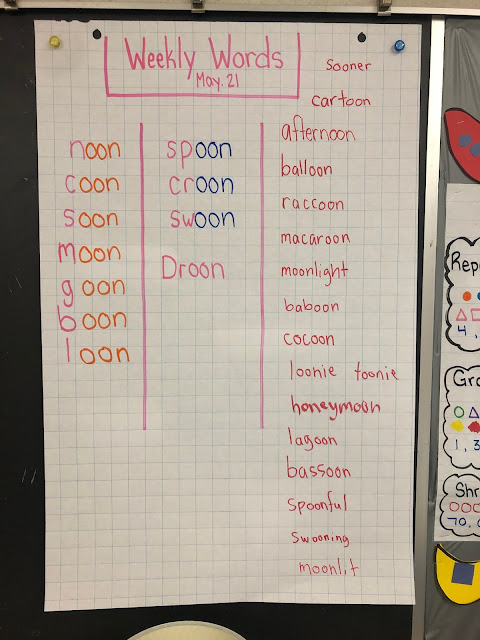 Weekly Words
May. 21
noon
coon
soon
moon
goon
boon
loon
spoon
croon
swoon
Droon
sooner
cartoon
afternoon
balloon
raccoon
macaroon
moonlight
baboon
cocoon
loonie toonie
honeymoon
lagoon
bassoon
spoonful
swooning
moonlit
Repe
4,
Gro
1, 3
Shr
70,